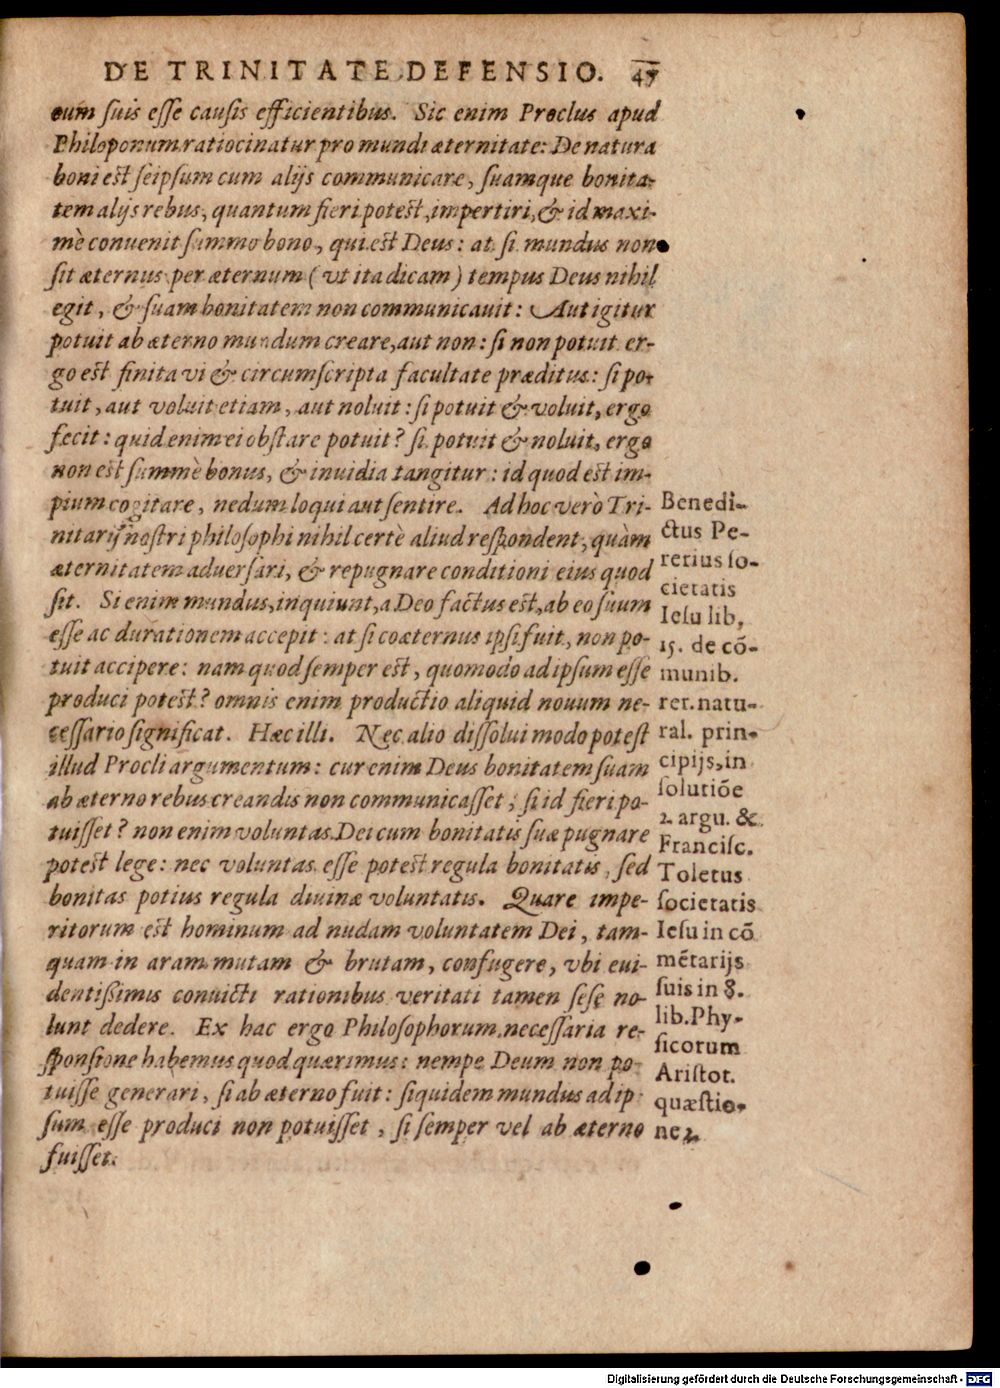 DE TRINITATE DEFENSIO. 47
cum suis esse causis efficientibus. Sic enim Proclus apud
Philoponum ratiocinatur pro mundi æternitate: De natura
boni est seipsum cum alijs communicare, suamque bonita-
tem alijs rebus, quantum fieri potest, impertiri, & id maxi-
mè conuenit summo bono, qui est Deus: at si mundus non
sit æternus per æternum (vt ita dicam) tempus Deus nihil
egit, & suam bonitatem non communicauit: Aut igitur
potuit ab æterno mundum creare, aut non: si non potuit er-
go est finita vi & circumscripta facultate præditus: si po-
tuit, aut voluit etiam, aut noluit: si potuit & voluit, ergo
fecit: quid enim ei obstare potuit? si potuit & noluit, ergo
non est summè bonus, & inuidia tangitur: id quod est im-
pium cogitare, nedum loqui aut sentire. Ad hoc verò Tri-
nitarij nostri philosophi nihil certè aliud respondent, quàm
æternitatem aduersari, & repugnare conditioni eius quod
fit. Si enim mundus, inquiunt, a Deo factus est, ab eo suum
esse ac durationem accepit: at si coæternus ipsi fuit, non po-
tuit accipere: nam quod semper est, quomodo ad ipsum esse
produci potest? omnis enim productio aliquid nouum ne-
cessario significat. Hæc illi. Nec alio dissolui modo potest
illud Procli argumentum: cur enim Deus bonitatem suam
ab æterno rebus creandis non communicasset, si id fieri po-
tuisset? non enim voluntas Dei cum bonitatis suæ pugnare
potest lege: nec voluntas esse potest regula bonitatis, sed
bonitas potius regula diuinæ voluntatis. Quare impe-
ritorum est hominum ad nudam voluntatem Dei, tam-
quam in aram mutam & brutam, confugere, vbi eui-
dentißimis conuicti rationibus veritati tamen sese no-
lunt dedere. Ex hac ergo Philosophorum necessaria re-
sponsione habemus quod quærimus: nempe Deum non po-
tuisse generari, si ab æterno fuit: siquidem mundus ad ip
sum esse produci non potuisset, si semper vel ab æterno
fuisset.
Benedi-
ctus Pe-
rerius so-
cietatis
Iesu lib,
15. de cō-
munib.
rer. natu-
ral. prin-
cipijs, in
solutiōe
2. argu. &
Francisc.
Toletus
societatis
Iesu in cō
mētarijs
suis in 8.
lib. Phy-
sicorum
Aristot.
quæstio-
ne 2.
Digitalisierung gefördert durch die Deutsche Forschungsgemeinschaft - DFG